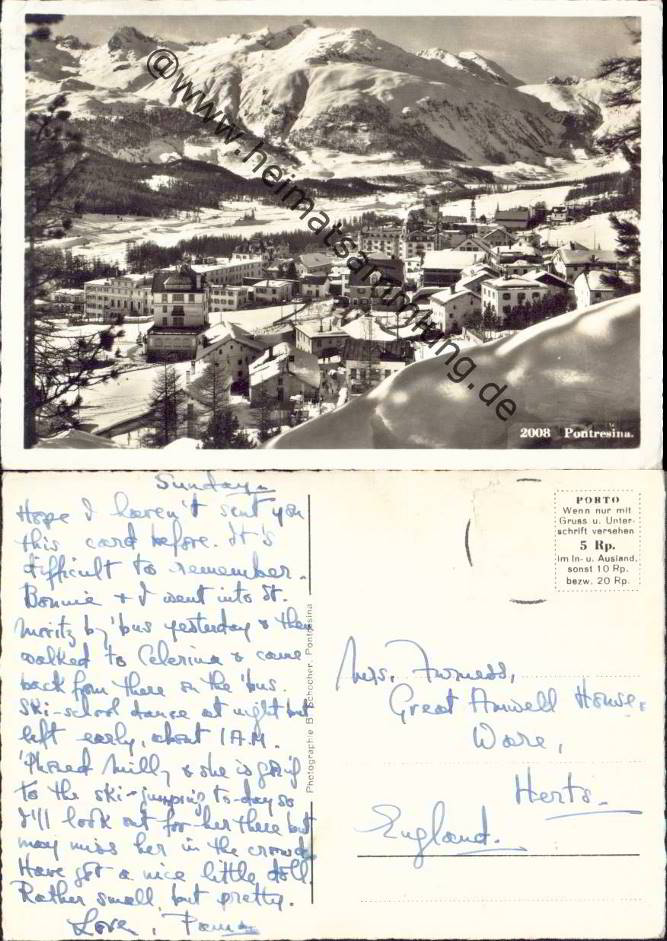 @www.heimatsammlung.de
2008 Pontresina.
Sunday
Hope I haven't sent you
this card before. It's
difficult to remember.
Bonnie & I went into St.
Moritz by 'bus yesterday & then
walked to Celerina & came
back from there on the 'bus.
Ski-school dance at night but
left early, about 1 A.M.
'Phoned Milly & she is going
to the ski-jumping to-day so
I'll look out for her there but
may miss her in the crowd.
Have got a nice little doll.
Rather small but pretty.
Love,
Photographie B. Schocher, Pontresina
PORTO
Wenn nur mit
Gruss u. Unter-
schrift versehen
5 Rp.
im In- u. Ausland,
sonst 10 Rp.
bezw. 20 Rp.
Mrs. Furness,
Great Amwell House,
Ware,
Herts.
England.